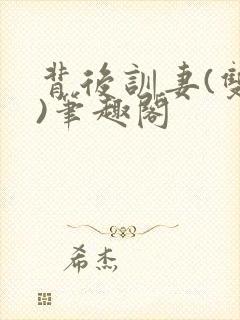 背後訓妻(雙
)筆趣閣
希杰